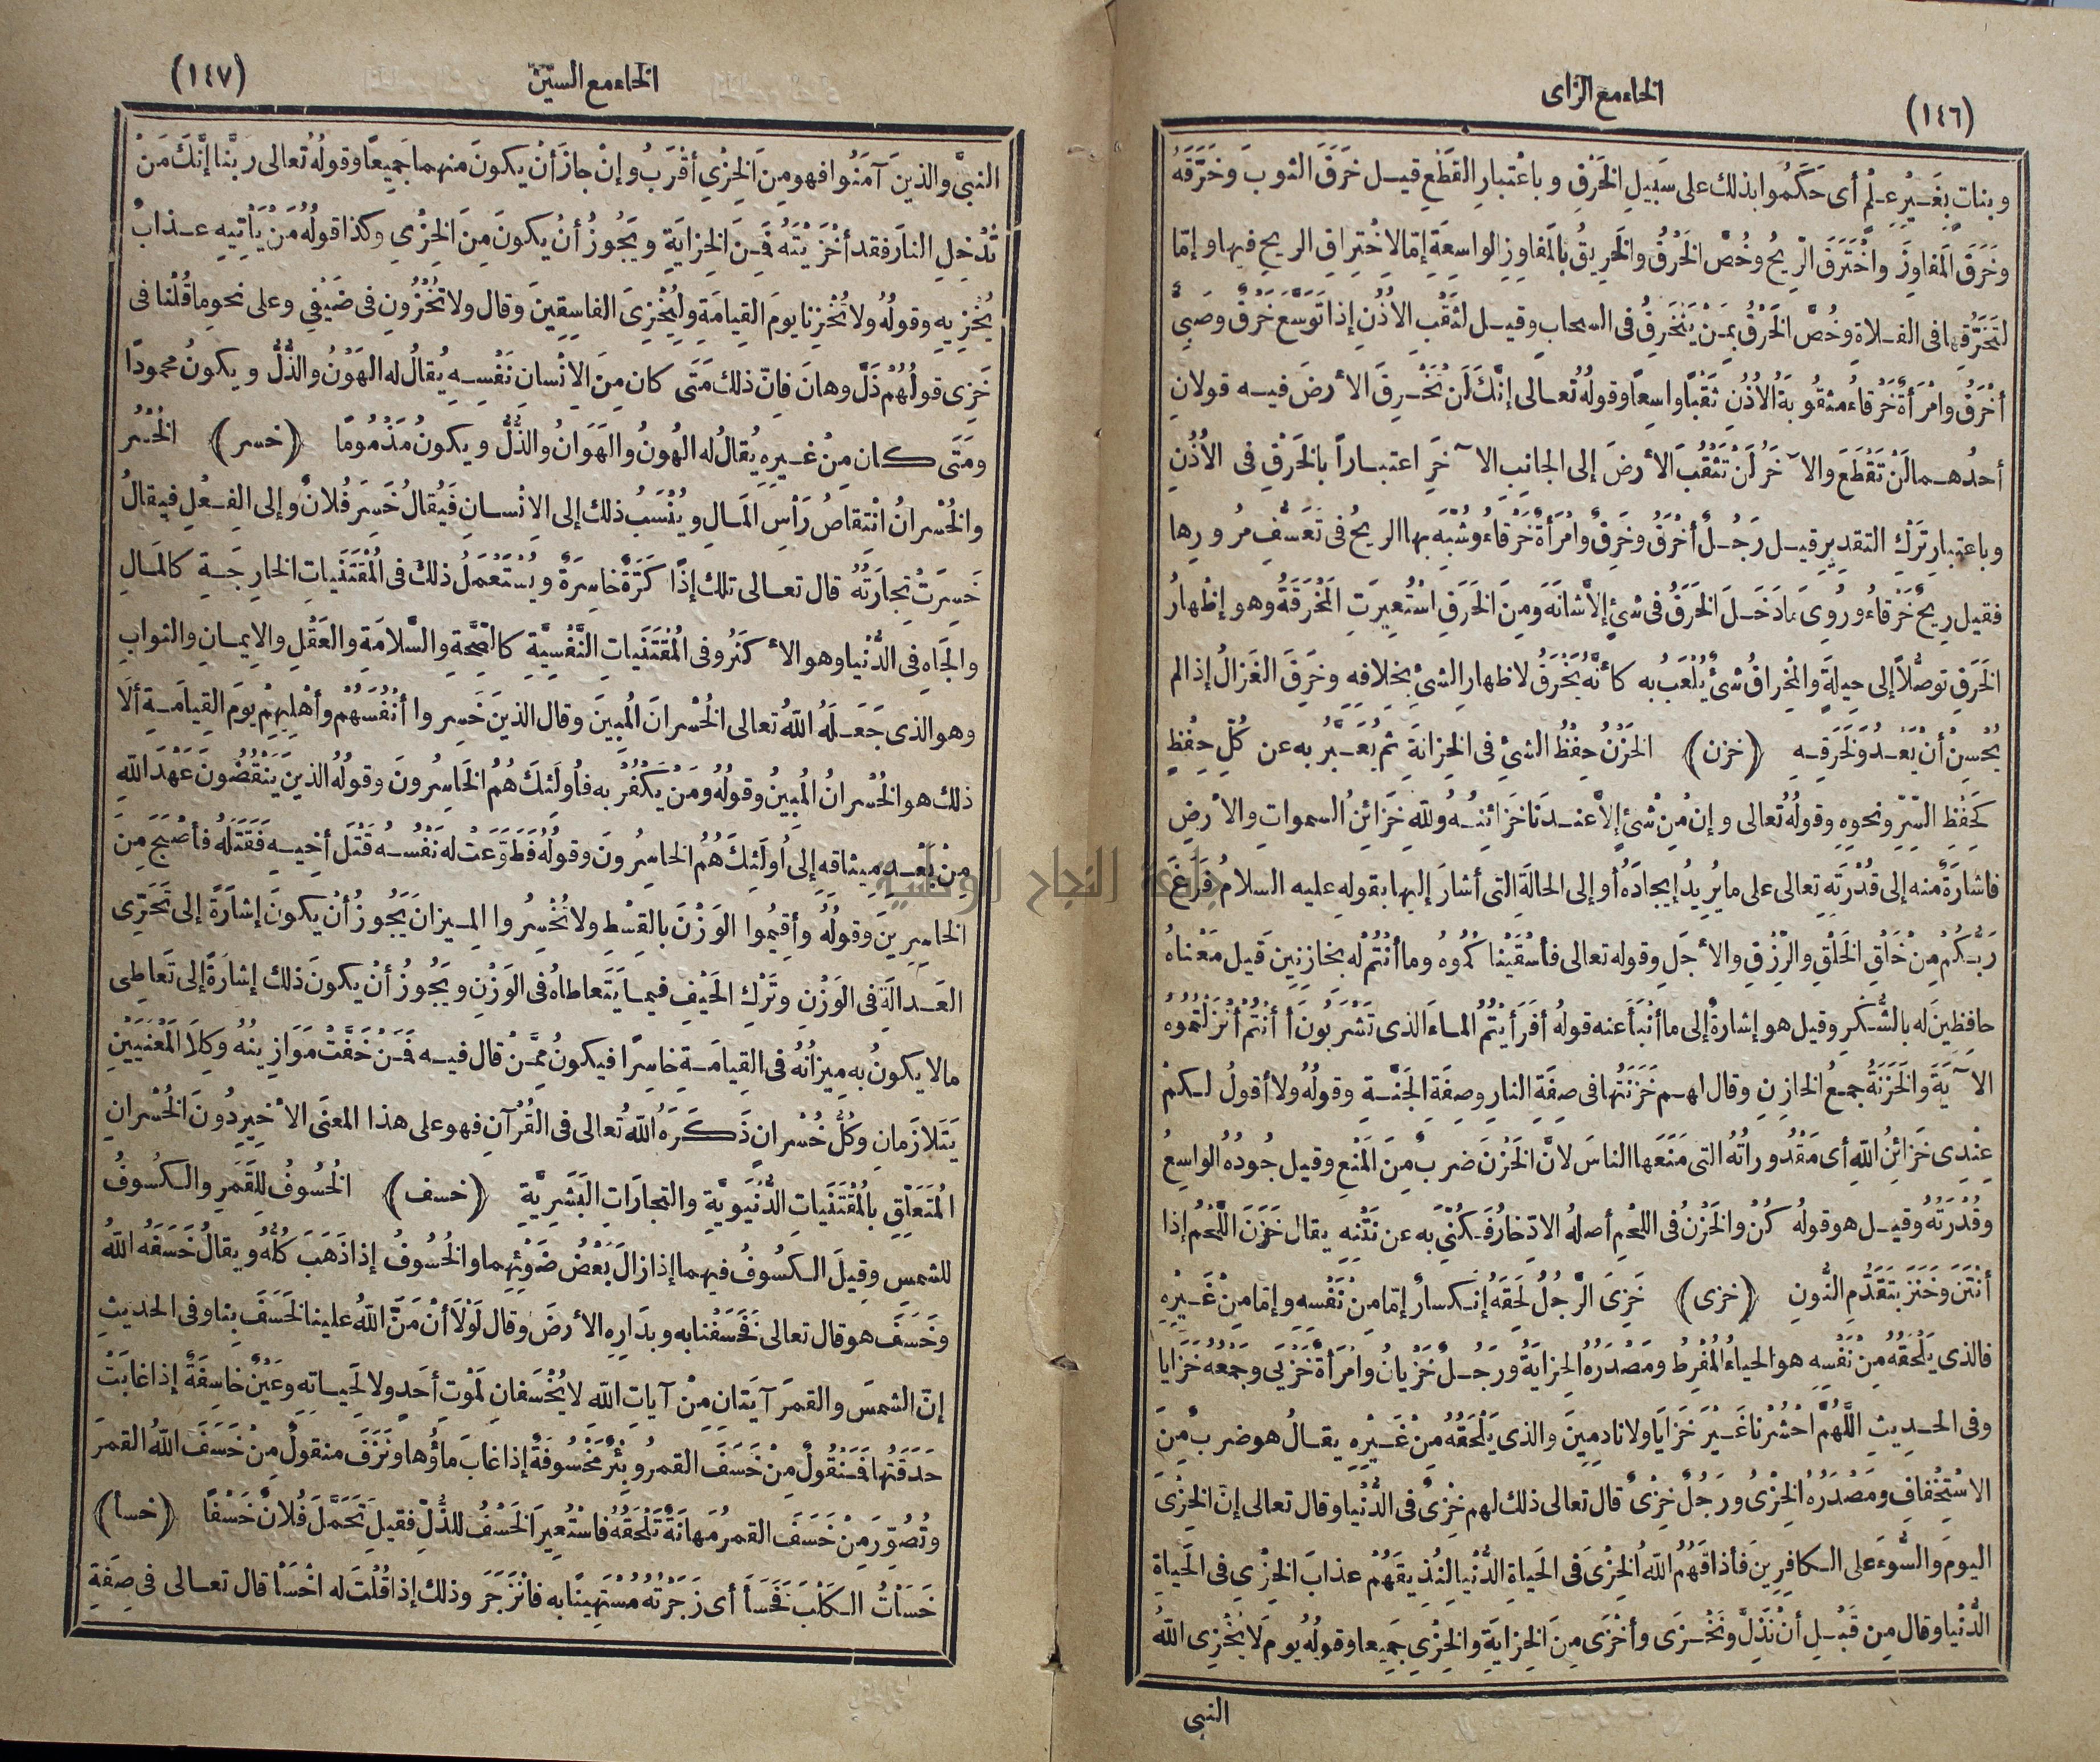 (١٤٦)
الخاء مع الزاى
وبنات بِغَيْرِ عِلْمٍ أى حَكَمُوا بذلك على سَبِيلِ الخَرْقِ وباعْتبارِ القَطْعِ قيل خَرَقَ الثوبَ وخَرَّقَهُ
وخَرَقَ المَفاوِزَ واخْتَرَقَ الرِّيحُ وخُصَّ الخَرْقُ والخَرِيقُ بالمَفاوِزِ الواسعةِ إمّا لاخْتِراقِ الريحِ فيها وإمّا
لتَخَرُّقِها فى الفلاةِ وخُصَّ الخَرْقُ بمَنْ يَنْخَرِقُ فى السحابِ وقيل لثَقْبِ الأُذُنِ إذا تَوَسَّعَ خَرْقٌ وصَبِىٌّ
أخْرَقُ وامْرَأةٌ خَرْقاءُ مثقُوبَةُ الأذُنِ ثَقْبًا واسِعًا وقولُهُ تعالى إنَّكَ لَنْ تَخْرِقَ الأرضَ فيه قولانِ
أحدُهما لَنْ تَقْطَعَ والآخَرُ لَنْ تَثْقُبَ الأرضَ إلى الجانِبِ الآخَرِ اعتباراً بالخَرْقِ فى الأُذُنِ
وباعتبارِ تَرْكِ التقديرِ قيل رَجُلٌ أخْرَقُ وخَرِقٌ وامْرَأةٌ خَرْقاءُ وشُبِّهَ بها الريحُ فى تَعَسُّفِ مُرُورِها
فقيل رِيحٌ خَرْقاءُ ورُوِىَ ما دَخَلَ الخَرَقُ فى شئٍ إلّا شانَهُ ومِنَ الخَرَقِ اسْتُعِيرَتِ المَخْرَقَةُ وهو إظْهارُ
الخَرَقِ توصُّلاً إلى حِيلَةٍ والمِخْراقُ شئٌ يُلْعَبُ به كأنَّهُ يُخْرَقُ لاظهارِ الشئِ بخلافِهِ وخَرِقَ الغَزالُ إذا لم
يُحْسِنْ أنْ يَعْدُوَ لخَرَقِهِ (خزن) الخَزْنُ حِفْظُ الشئِ فى الخِزانَةِ ثم يُعَبَّرُ به عن كُلِّ حِفْظٍ
كحِفْظِ السِّرِّ ونحوِهِ وقولُهُ تعالى وإنْ مِنْ شَئٍ إلّا عنْدَنا خَزائِنُهُ وللهِ خَزائِنُ السمواتِ والأرْضِ
فاشارَةٌ منه إلى قُدْرَتِهِ تعالى على ما يُرِيدُ إيجادَهُ أو إلى الحالَةِ التى أشارَ إليها بقولِهِ عليه السلامُ فَرَغَ
رَبُّكُمْ مِنْ خَلْقِ الخَلْقِ والرِّزْقِ والأجَلِ وقوله تعالى فأسْقَيْناكُمُوهُ وما أنْتُمْ لَهُ بخازِنِينَ قيل مَعْناهُ
حافِظِينَ له بالشُّكْرِ وقيل هو إشارةٌ إلى ما أنْبَأَ عنه قولُهُ أفَرَأيْتُمُ الماءَ الذى تَشْرَبُونَ أأنْتُمْ أنْزَلْتُمُوهُ
الآيَةَ والخَزَنَةُ جمعُ الخازِنِ وقال لهم خَزَنَتُها فى صِفَةِ النارِ وصِفَةِ الجَنَّةِ وقولُهُ ولا أقولُ لكُمْ
عِنْدِى خَزائِنُ اللهِ أى مَقْدُوراتُهُ التى مَنَعَها الناسَ لأنَّ الخَزْنَ ضربٌ مِنَ المَنْعِ وقيل جُودُهُ الواسِعُ
وقُدْرَتُهُ وقيل هو قولُه كُنْ والخَزْنُ فى اللحْمِ أصلُهُ الادّخارُ فَكُنّىَ به عن نَتْنِهِ يقال خَزِنَ اللَّحْمُ إذا
أنْتَنَ وخَنَزَ بتَقَدُّمِ النُّونِ (خزى) خَزِىَ الرَّجُلُ لَحِقَهُ إنْكسارٌ إمّا مِنْ نَفْسِهِ وإمّا مِنْ غَيْرِهِ
فالذى يَلْحَقُهُ مِنْ نَفْسِهِ هو الحياءُ المُفْرِطُ ومَصْدَرُهُ الخِزايَةُ ورَجُلٌ خَزْيانُ وامْرَأةٌ خَزْيَى وجَمْعُهُ خَزايا
وفى الحديثِ اللَّهُمَّ احْشُرْنا غَيْرَ خَزايا ولا نادِمِينَ والذى يَلْحَقُهُ مِنْ غَيْرِهِ يقالُ هو ضربٌ مِنَ
الاسْتِخْفافِ ومَصْدَرُهُ الخِزْىُ ورَجُلٌ خِزْىٌ قال تعالى ذلك لهم خِزْىٌ فى الدُّنْيا وقال تعالى إنّ الخِزْىَ
اليومَ والسُّوءَ على الكافِرِينَ فأذاقَهُمُ اللهُ الخِزْىَ فى الحَياةِ الدُّنْيا لنُذِيقَهُمْ عذابَ الخِزْىِ فى الحَياةِ
الدُّنْيا وقال مِن قَبْلِ أنْ نَذِلَّ ونَخْزَى وأخْزَى مِنَ الخِزايَةِ والخِزْىِ جَمِيعا وقولُهُ يومَ لا يُخْزِى اللهُ
النبى
الخاء مع السين
(١٤٧)
النبىَّ والذينَ آمَنُوا فهو مِنَ الخِزْىِ أقْرَبُ وإنْ جازَ أنْ يكونَ منهما جَمِيعًا وقولُهُ تعالى رَبَّنا إنَّكَ مَنْ
تُدْخِلِ النارَ فقد أخْزَيْتَهُ فَمِنَ الخِزايَةِ ويَجُوزُ أنْ يكونَ مِنَ الخِزْىِ وكذا قولُهُ مَنْ يَأْتِيهِ عذابٌ
يُخْزِيهِ وقولُهُ ولا تُخْزِنا يومَ القِيامَةِ ولِيُخْزِىَ الفاسِقِينَ وقال ولا تُخْزُونِ فى ضَيْفِى وعلى نحوِ ما قُلْنا فى
خَزِى قولُهُمْ ذَلَّ وهانَ فانّ ذلك مَتَى كان مِنَ الانْسانِ نَفْسِهِ يُقالُ له الهَوْنُ والذُّلُّ ويكونُ محمودًا
ومَتَى كان مِنْ غَيرِهِ يُقالُ له الهُونُ والهَوانُ والذُّلُّ ويكونُ مَذْمُومًا (خسر) الخُسْرُ
والخُسْرانُ انْتِقاصُ رَأْسِ المَالِ ويُنْسَبُ ذلك إلى الانْسانِ فَيُقالُ خَسِرَ فُلانٌ وإلى الفِعْلِ فيقالُ
خَسِرَتْ تِجارَتُهُ قال تعالى تلك إذًا كَرَّةٌ خاسِرَةٌ ويُسْتَعْمَلُ ذلك فى المُقْتَنَياتِ الخارِجَةِ كالمَالِ
والجَاهِ فى الدُّنْيا وهو الأكثَرُ وفى المُقْتَنَياتِ النَّفْسِيَّةِ كالصّحَّةِ والسَّلامَةِ والعَقْلِ والإيمانِ والثوابِ
وهو الذى جَعَلَهُ اللهُ تعالى الخُسْرانَ المُبِينَ وقال الذينَ خَسِروا أنْفُسَهُمْ وأهْلِيهِمْ يومَ القِيامَةِ ألَا
ذلك هو الخُسْرانُ المُبِينُ وقولُهُ ومَنْ يَكْفُرْ به فأولَئِكَ هُمُ الخَاسِرُونَ وقولُهُ الذينَ يَنْقُضُونَ عَهْدَ اللهِ
مِنْ بَعْدِ مِيثاقِهِ إلى أُولَئِكَ هُمُ الخاسِرُونَ وقولُهُ فَطَوَّعَتْ له نَفْسُهُ قَتْلَ أخِيهِ فَقَتَلَهُ فأصْبَحَ مِنَ
الخاسِرِينَ وقولُهُ وأقِيمُوا الوَزْنَ بالقِسْطِ ولا تُخْسِرُوا المِيزانَ يَجُوزُ أنْ يكونَ إشارَةً إلى تَحَرِّى
العَدالَةِ فى الوَزْنِ وتَرْكِ الحَيْفِ فيما يَتَعاطاهُ فى الوَزْنِ ويَجُوزُ أنْ يكونَ ذلك إشارَةً إلى تَعاطِى
مالا يكونُ به مِيزانُهُ فى القِيامَةِ خاسِرًا فيكونُ مِمَّنْ قال فيه فَمَنْ خَفَّتْ مَوازِينُهُ وكِلَا المَعْنَيَيْنِ
يَتَلازَمانِ وكُلُّ خُسْرانٍ ذَكَرَهُ اللهُ تعالى فى القُرْآنِ فهو على هذا المعنَى الأخِيرِ دُونَ الخُسْرانِ
المُتَعَلِّقِ بالمُقْتَنَياتِ الدُّنْيَوِيَّةِ والتجارَاتِ البَشَرِيَّةِ (خسف) الخُسُوفُ للقَمَرِ والكُسوفُ
للشمسِ وقِيلَ الكُسُوفُ فيهما إذا زالَ بَعْضُ ضَوْئِهِما والخُسُوفُ إذا ذَهَبَ كُلُّهُ ويقالُ خَسَفَهُ اللهُ
وخَسَفَ هو قال تعالى فَخَسَفْنا به وبِدَارِهِ الأرضَ وقال لَوْلَا أنْ مَنَّ اللهُ علينا لَخَسَفَ بِنا وفى الحديثِ
إنّ الشمسَ والقمرَ آيَتانِ مِنْ آياتِ اللهِ لا يُخْسَفانِ لمَوْتِ أحَدٍ ولا لحَياتِهِ وعَيْنٌ خاسِفَةٌ إذا غابَتْ
حَدَقَتُها فَمَنْقُولٌ مِنْ خَسَفَ القمرُ وبِئْرٌ مَخْسُوفَةٌ إذا غابَ ماؤُها ونَزَفَ منقولٌ مِنْ خَسَفَ اللهُ القمرَ
وتُصُوِّرَ مِنْ خَسَفَ القمرُ مَهانَةٌ تَلْحَقُهُ فاسْتُعِيرَ الخَسْفُ للذُّلِّ فقيلَ تَحَمَّلَ فُلانٌ خَسْفًا (خسأ)
خَسَأْتُ الكَلْبَ فَخَسَأَ أى زَجَرْتُهُ مُسْتَهِينًا به فانْزَجَرَ وذلك إذا قُلْتَ له اخْسَأْ قال تعالى فى صِفَةِ
جامعة النجاح الوطنية